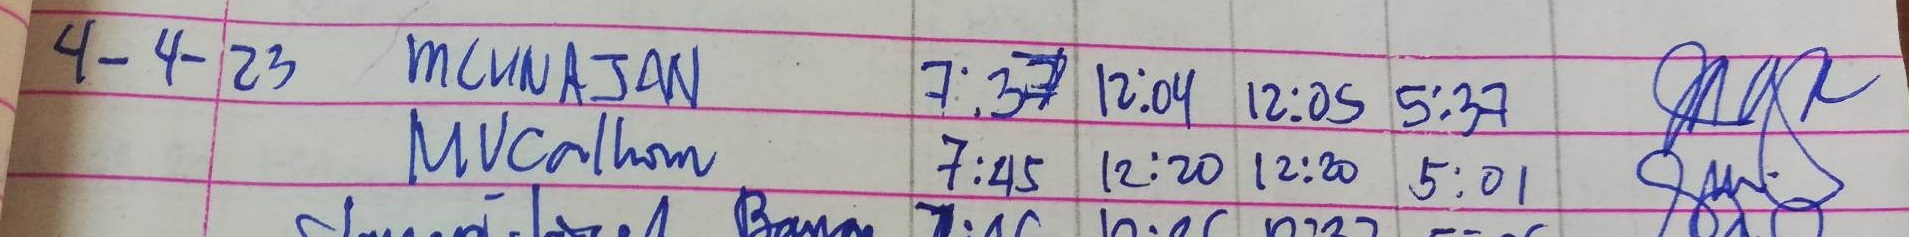 4-4-23 MCUNAJAN 7:37 12:04 12:05 5:37
MVCalhom 7:45 12:20 12:20 5:01